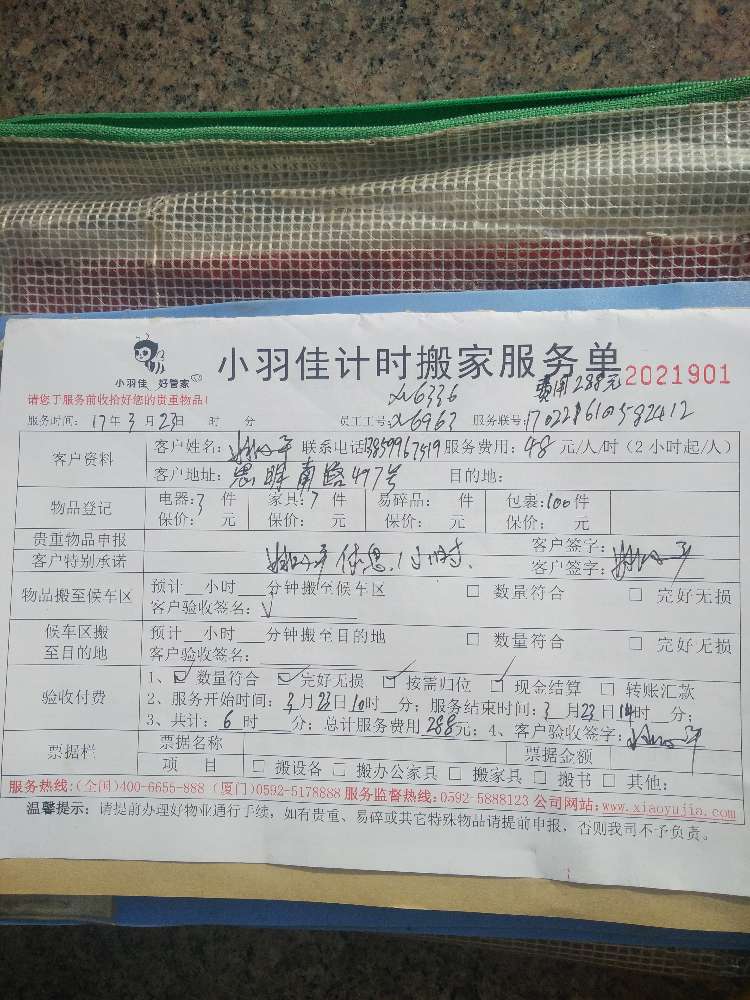 小羽佳 好管家
小羽佳计时搬家服务单
费用288元
2021901
请您于服务前收拾好您的贵重物品!
服务时间: 17年3月23日 时 分 员工工号: 6336 6963 服务联号:
客户资料 客户姓名: 联系电话 服务费用: 48 元/人/时 (2小时起/人)
客户地址: 思明南路497号 目的地:
物品登记 电器: 3 件 家具: 7 件 易碎品: 件 包裹: 100件
保价: 元 保价: 元 保价: 元 保价: 元
贵重物品申报 客户签字:
客户特别承诺 休息1小时. 客户签字:
物品搬至候车区 预计__小时__分钟搬至候车区 □ 数量符合 □ 完好无损
客户验收签名: V
候车区搬至目的地 预计__小时__分钟搬至目的地 □ 数量符合 □ 完好无损
客户验收签名:
验收付费 1、☑ 数量符合 ☑ 完好无损 ☑ 按需归位 ☑ 现金结算 □ 转账汇款
2、服务开始时间: 3月23日10时__分; 服务结束时间: 3月23日14时__分;
3、共计: 6 时__分; 总计服务费用288元; 4、客户验收签字:
票据栏 票据名称 票据金额
项 目 □ 搬设备 □ 搬办公家具 □ 搬家具 □ 搬书 □ 其他:
服务热线:(全国)400-6655-888 (厦门)0592-5178888 服务监督热线:0592-5888123 公司网站:www.xiaoyujia.com
温馨提示: 请提前办理好物业通行手续, 如有贵重、易碎或其它特殊物品请提前申报, 否则我司不予负责。